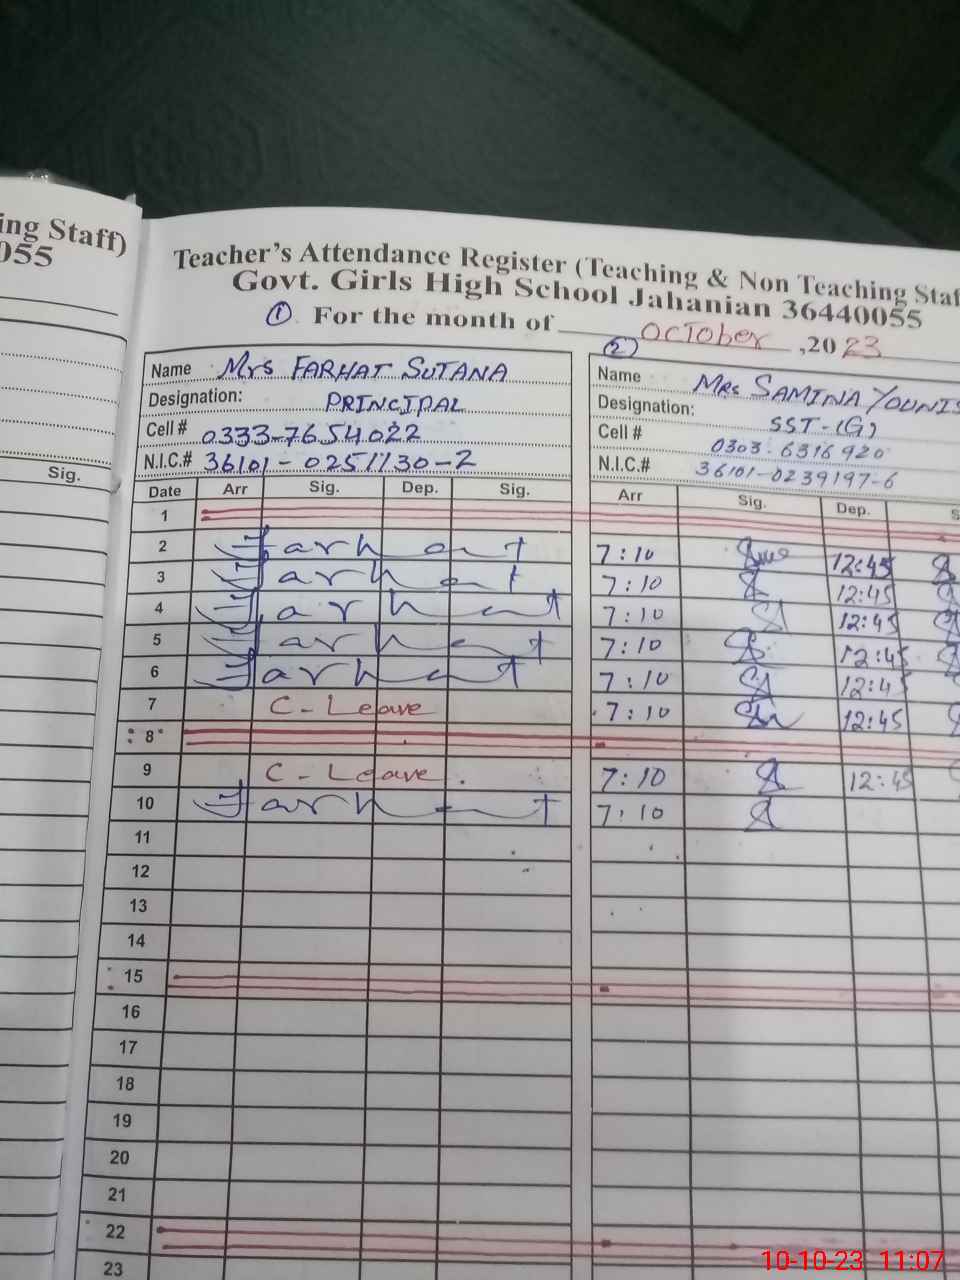 ing Staff)
055
Sig.
Teacher's Attendance Register (Teaching & Non Teaching Staf
Govt. Girls High School Jahanian 36440055
① For the month of OCTober ,2023
Name Mrs FARHAT SUTANA
Designation: PRINCIPAL
Cell # 0333-7654022
N.I.C.# 36101-0251130-2
Date Arr Sig. Dep. Sig.
②
Name Mrs SAMINA YOUNIS
Designation: SST-(G)
Cell # 0303-6316920
N.I.C.# 36101-0239197-6
Arr Sig. Dep. S
1
2 Farhat 7:10 12:45
3 Farhat 7:10 12:45
4 Farhat 7:10 12:45
5 Farhat 7:10 12:45
6 Farhat 7:10 12:45
7 C-Leave 7:10 12:45
8
9 C-Leave 7:10 12:45
10 Farhat 7:10
11
12
13
14
15
16
17
18
19
20
21
22
23
10-10-23 11:07